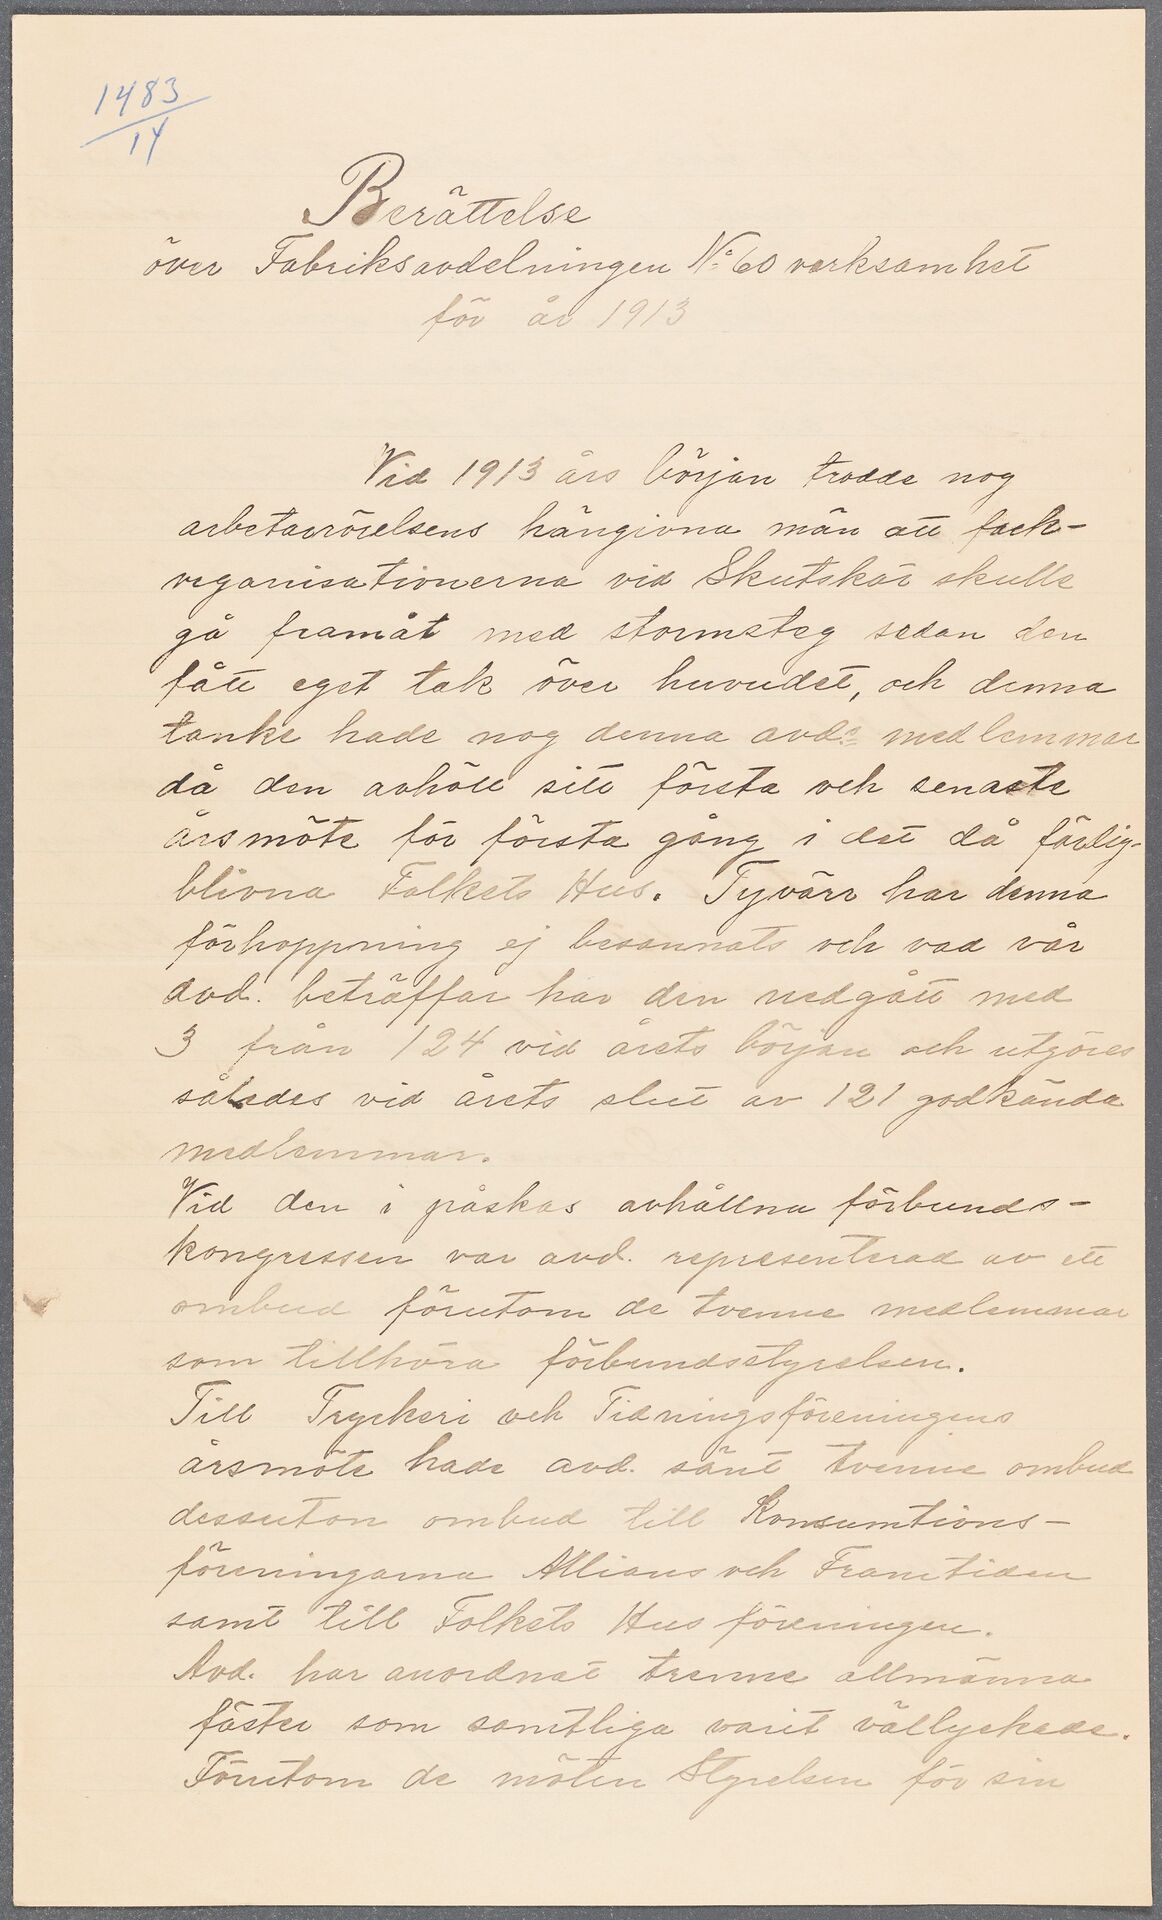 1483
14
Berättelse
över Fabriksavdelningen No: 60 verksamhet
för år 1913
Vid 1913 års början trodde nog
arbetarrörelsens hängivna män att fack-
organisationerna vid Skutskär skulle
gå framåt med stormsteg sedan den
fått eget tak över huvudet, och denna
tanke hade nog denna avds medlemmar
då den avhöll sitt första och senaste
årsmöte för första gång i det då färdig-
blivna Folkets Hus. Tyvärr har denna
förhoppning ej besannats och vad vår
avd. beträffar har den nedgått med
3 från 124 vid årets början och utgöres
således vid årets slut av 121 godkända
medlemmar.
Vid den i påskas avhållna förbunds-
kongressen var avd. representerad av ett
ombud förutom de tvenne medlemmar
som tillhöra förbundsstyrelsen.
Till Tryckeri och Tidningsföreningens
årsmöte hade avd. sänt tvenne ombud
dessutom ombud till Konsumtions-
föreningarna Allians och Framtiden
samt till Folkets Hus föreningen.
Avd. har anordnat trenne allmänna
fäster som samtliga varit vällyckade.
Förutom de möten Styrelsen för sin